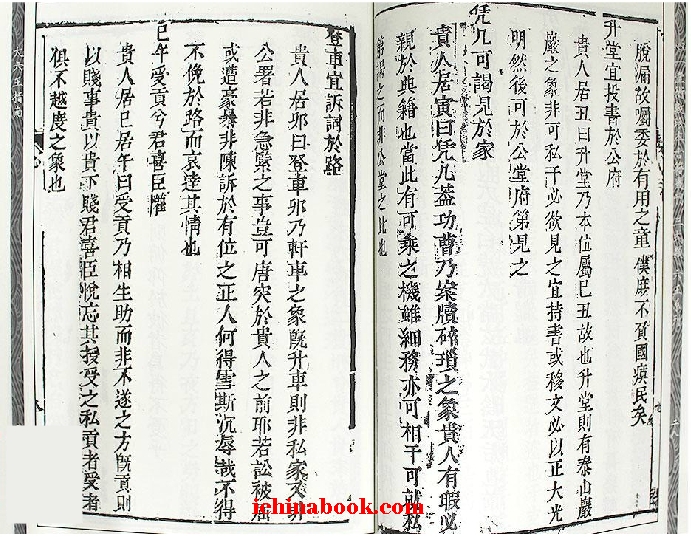 脫漏故濁委於有用之童僕庶不貧國病民矣
升堂宜投書於公府
貴人居丑曰升堂乃本位屬己丑故也升堂則有泰山巖
巖之象非可私干必欲見之宜持書或移文必以正大光
明然後可於公堂府第見之
凭几可謁見於家
貴人居寅曰凭几蓋功曹乃案牘碎瑣之象貴人有暇必
親於典籍也當此有可乘之機雖細務亦可相干可就私
第謁之而非公堂之比也
登車宜訴詞於路
貴人居卯曰登車卯乃軒車之象既升車則非私家又非
公署若非急緊之事豈可唐突於貴人之前耶若訟被屈
或遭豪暴非陳訴於有位之正人何得雪斯沉辱哉不得
不俛於路而哀達其情也
巳午受貢兮君喜臣懽
貴人居巳居午曰受貢乃相生助而非不遂之方慨貢則
以賤事貴以貴下賤君喜臣悅忘其授受之私貢者受者
俱不越度之象也
ichinabook.com